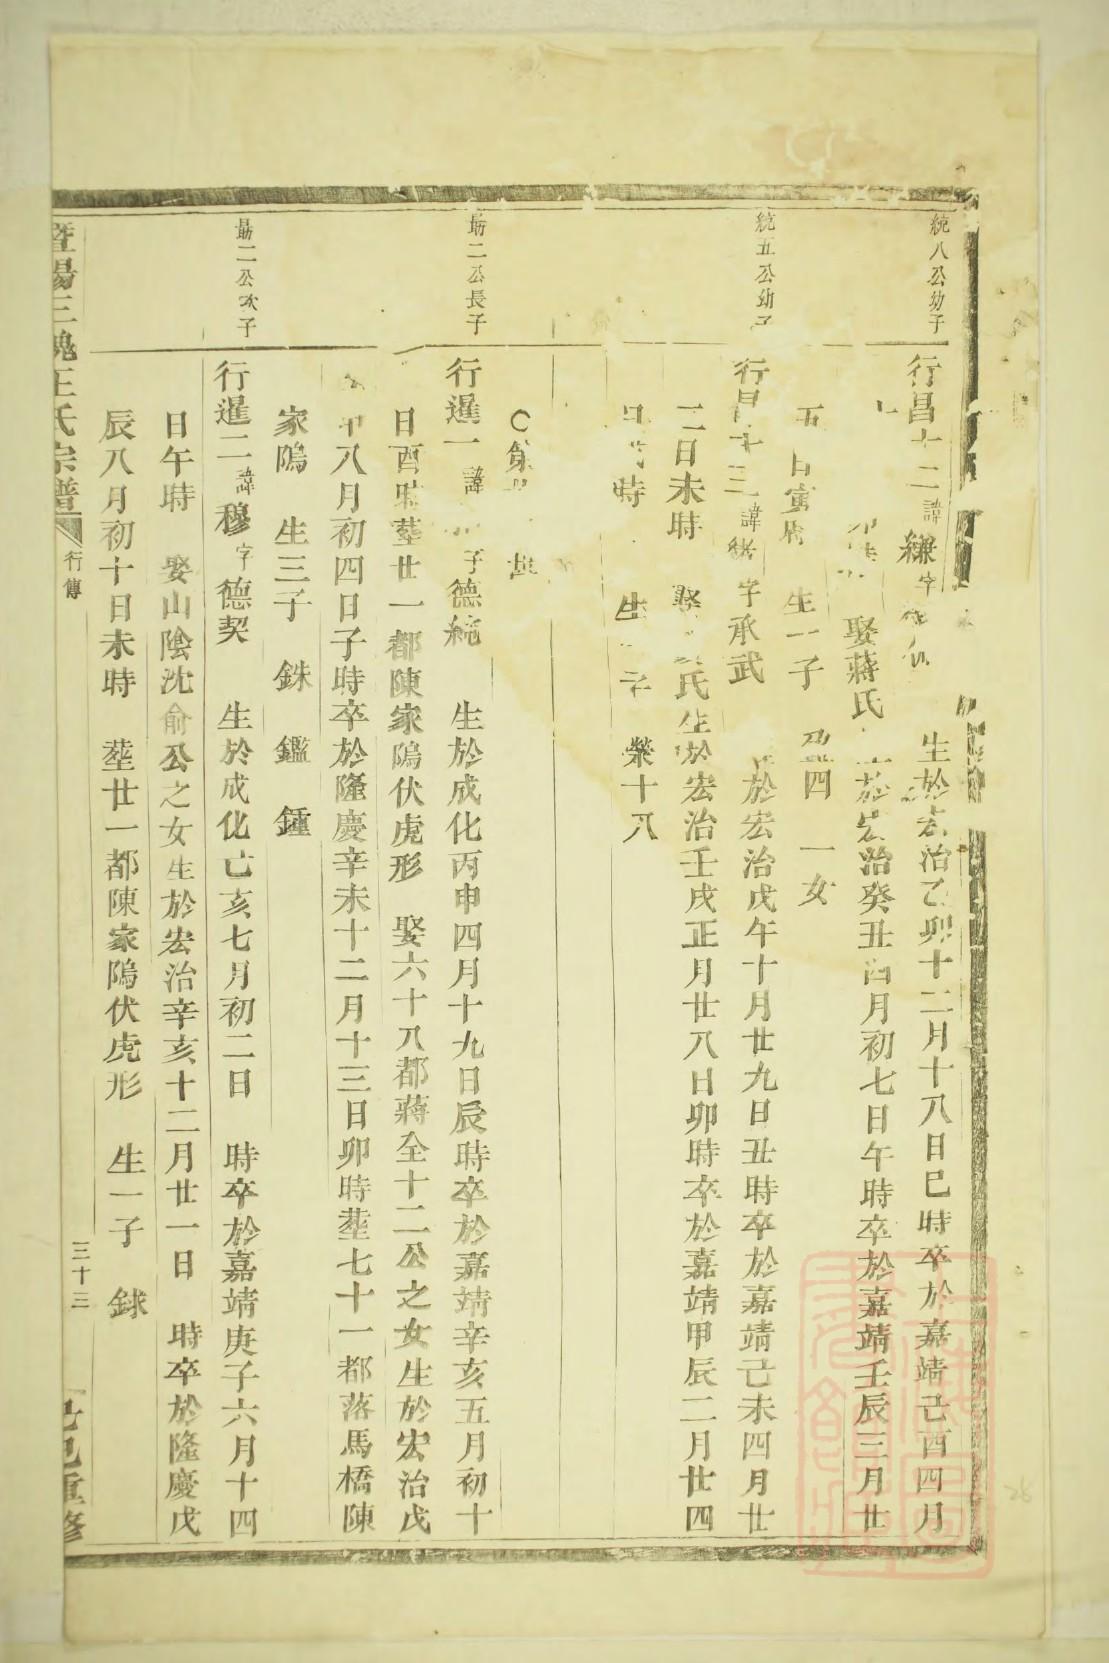 統八公幼子
行昌十二諱縑字
生於宏治乙卯十二月十八日巳時卒於嘉靖己酉四月
娶蔣氏 於宏治癸丑四月初七日午時卒於嘉靖壬辰三月廿
五日寅時 生一子 四 一女
統五公幼子
行昌十三諱緒字承武 於宏治戊午十月廿九日丑時卒於嘉靖己未四月廿
二日未時 娶 氏生於宏治壬戌正月廿八日卯時卒於嘉靖甲辰二月廿四
時 生 子 榮十八
○第
最二公長子
行暹一諱 字德純 生於成化丙申四月十九日辰時卒於嘉靖辛亥五月初十
日酉時塟廿一都陳家隖伏虎形 娶六十八都蔣全十二公之女生於宏治戊
申八月初四日子時卒於隆慶辛未十二月十三日卯時塟七十一都落馬橋陳
家隖 生三子 銖 鑑 鍾
最二公次子
行暹二諱穆字德契 生於成化己亥七月初二日 時卒於嘉靖庚子六月十四
日午時 娶山陰沈俞公之女生於宏治辛亥十二月廿一日 時卒於隆慶戊
辰八月初十日未時 塟廿一都陳家隖伏虎形 生一子 銶
暨陽三槐王氏宗譜 行傳 三十三 己巳重修